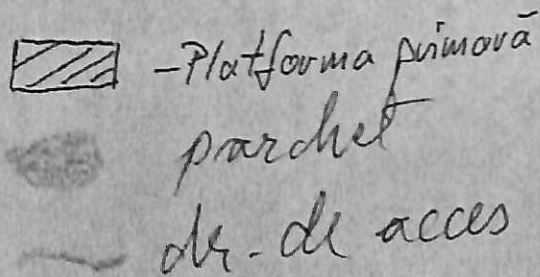 - Platforma primară
parchet
dr. de acces